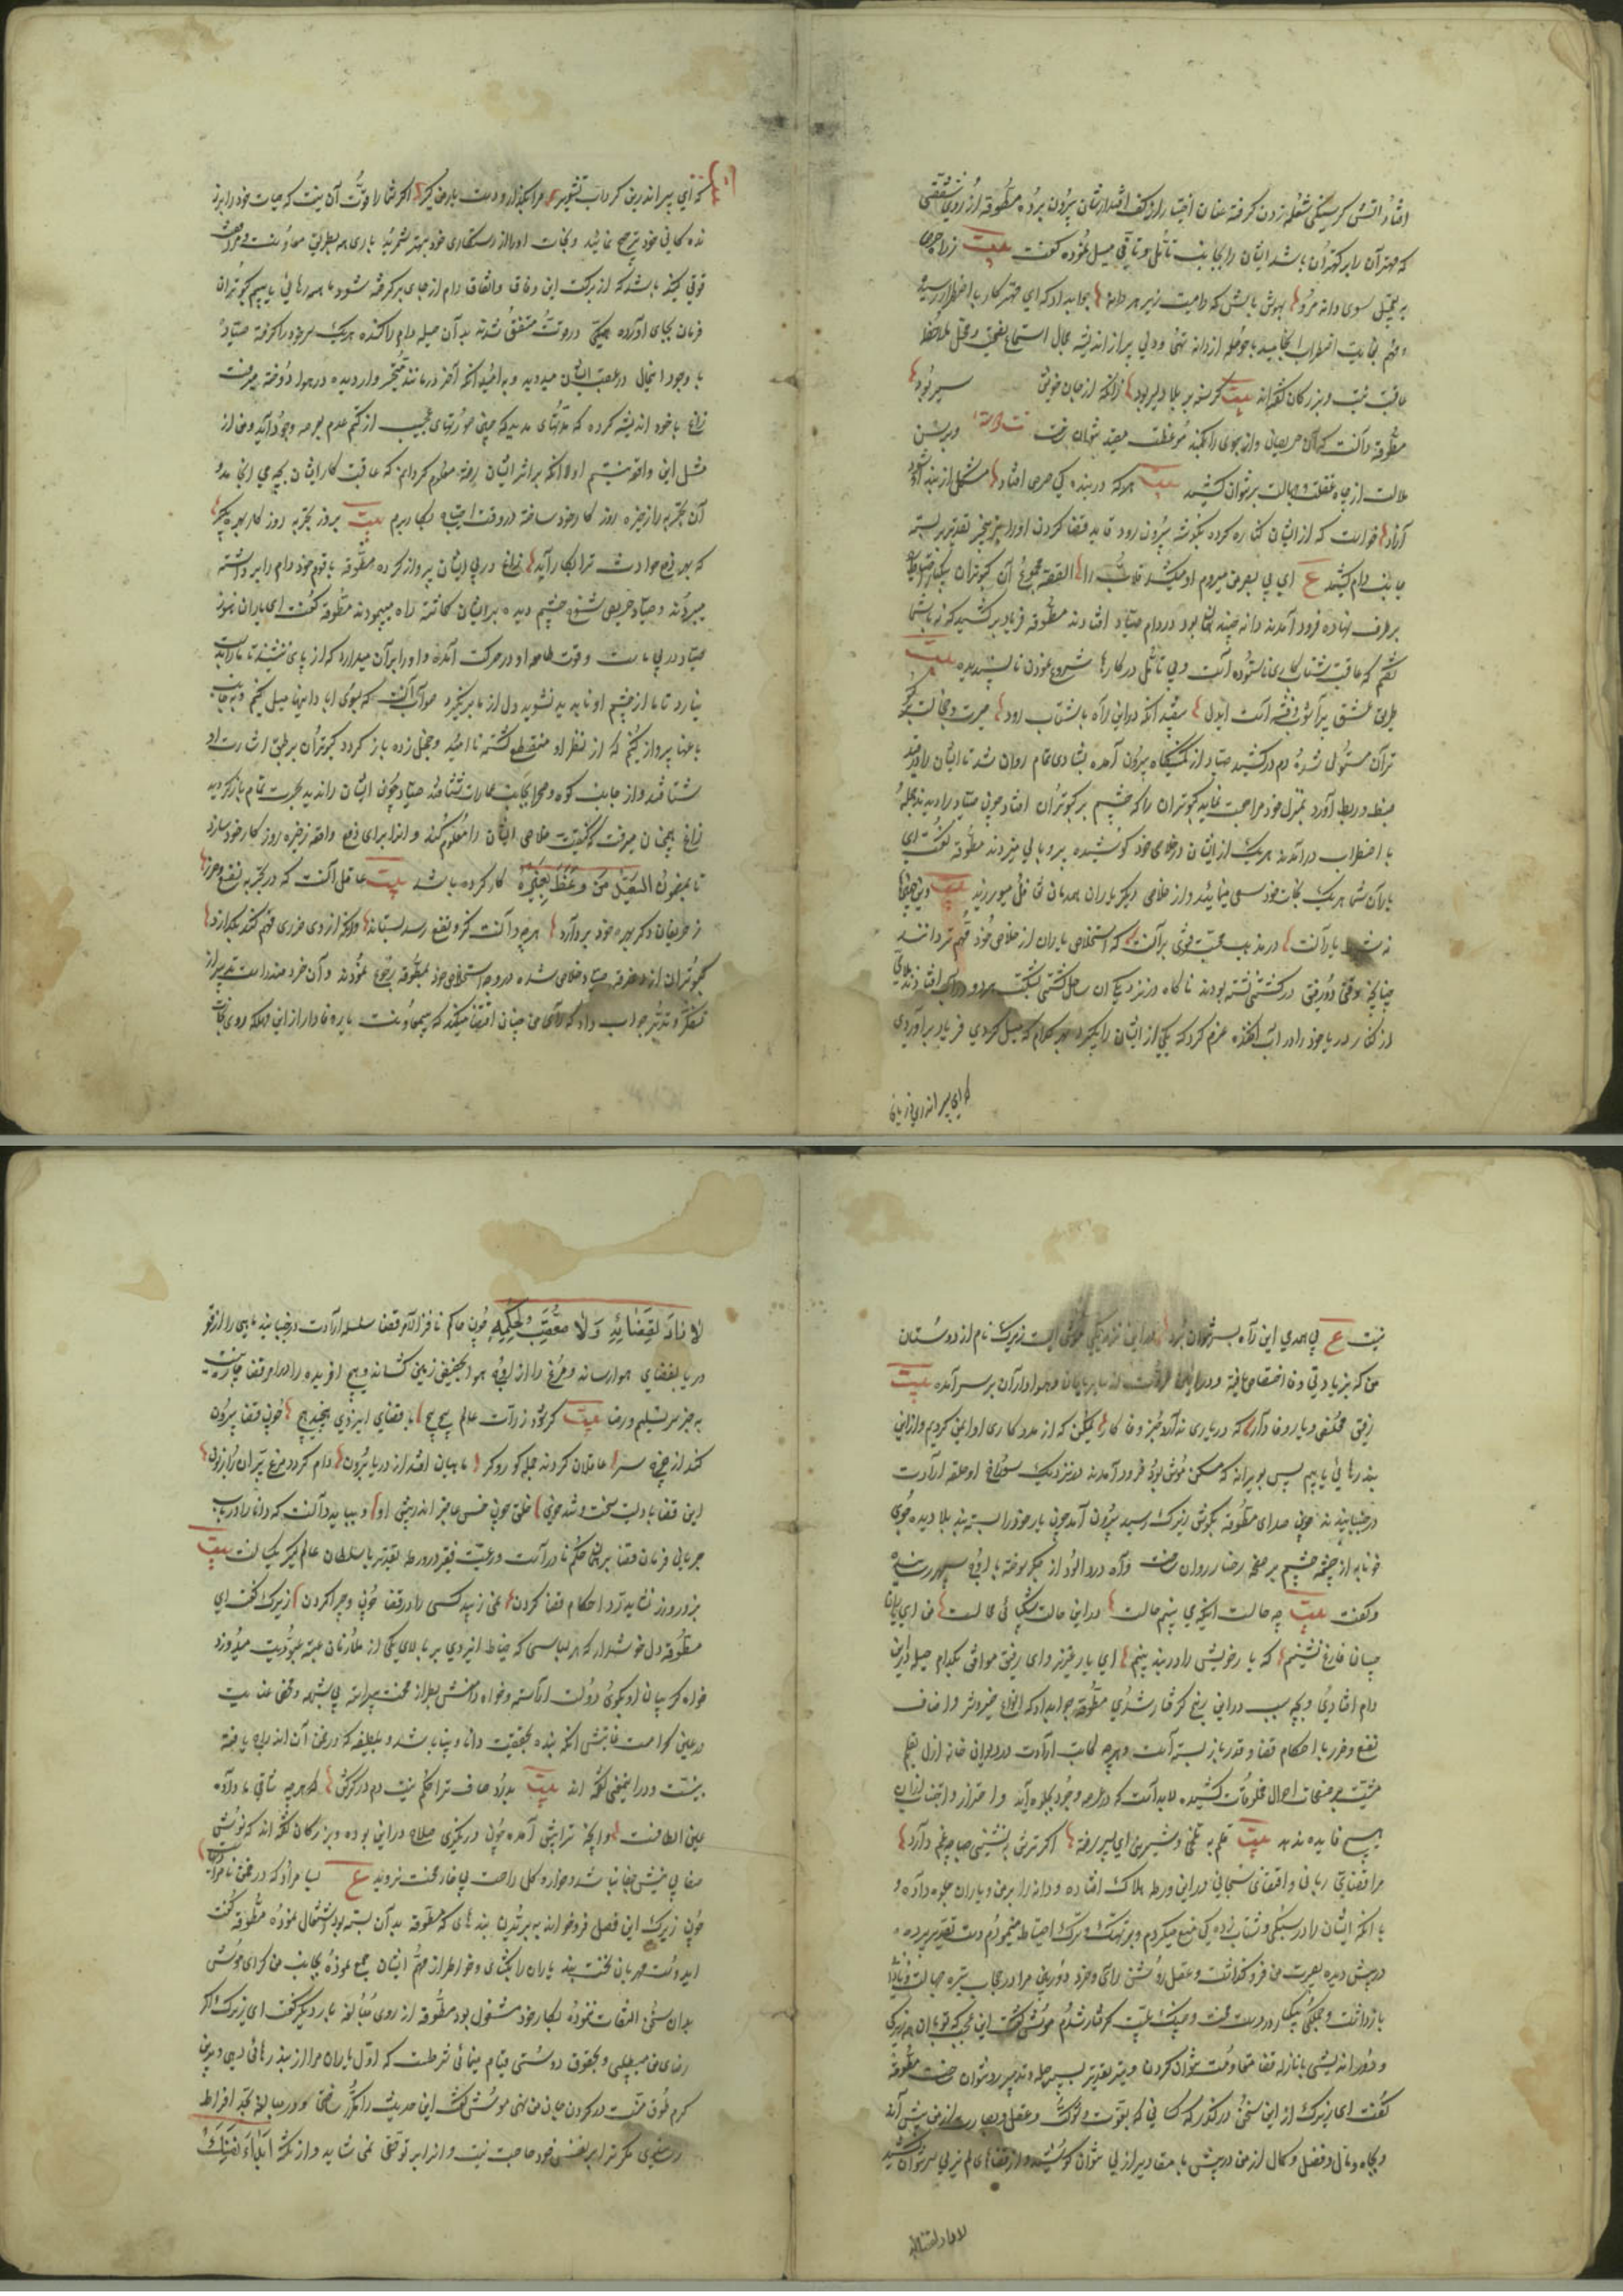 افتاد آتش گرسنگی شعله زدن گرفته عنان اختیار از کف اقتدارشان بیرون برد مطوقه از روی شفقتی
که مهتران را بر کهتران باشد ایشان را بجانب تأمل و تأنی میل نموده گفت بیت ز راه حرص
به تعجیل سوی دانه مرو بهوش باش که دامیست زیر هر دانه جواب دادند که ای مهتر کار باضطرار رسیده
و مهم بغایت اضطراب انجامیده با حوصله از دانه تهی و دلی پر از اندیشه مجال استماع نصیحت و محل ملاحظه
عاقبت نیست و بزرگان گفته اند بیت گرسنه بر بلا دلیر بود زانکه از جان خویش سیر بود
مطوقه دانست که آن حریصان دانه جوی را بکمند موعظت مقید نتوان ساخت و برشته
ملالت از چاه غفلت و جهالت بر نتوان کشید بیت هر که در بند یک حرص افتاد مشکل از بند او شود
آزاد خواست که از ایشان کناره کرده بگوشه بیرون رود قاید قضا گردن او را بزنجیر تقدیر بسته
بجانب دام کشید ع ای بی بصر من میروم او میکشد قلاب را القصه مجموع آن کبوتران بیکبار احتیاط
بر طرف نهاده فرود آمدند دانه چیدن همان بود در دام صیاد افتادند مطوقه فریاد برکشید که نه با شما
گفتم که عاقبت شتاب کاری ناستوده است و بی تأمل در کارها شروع نمودن ناپسندیده بیت
طریق عشق پر آشوب و فتنه است ای دل بیفتد آنکه در این راه با شتاب رود حیرت و خجالت بر کبو
تران مستولی شده دم درکشید صیاد از کمینگاه بیرون آمده بشادی تمام روان شد تا ایشان را در قید
ضبط و ربط آورد بمنزل خود مراجعت نماید کبوتران را که چشم بر کبوتران افتاد چون صیاد را دیدند بجمله
با اضطراب درآمدند هر یک از ایشان در خلاصی خود کوشیده پر و بالی میزدند مطوقه گفت ای
یاران شما هر یک نجات خود سعی مینمائید و از خلاصی دیگر یاران همدمان تغافل میورزید بیت و نیز چنین
نه شرط یارانست در مذهب محبت فتوی بر آنست که استخلاص یاران از خلاص خود مهم تر دانند
چنانچه وقتی دو رفیق در کشتی نشسته بودند ناگاه در نزدیکی آن ساحل کشتی بشکست هر دو در آب افتادند ملاحی
از کنار دریا خود را در آب افکنده عزم کرد که یکی از ایشان را بگیرد بهر کدام که میل کردی فریاد برآوردی
که ای پسر اندرین
که ای پسر اندرین گرداب تشویر مرا بگذار و دست یار من گیر اگر شما را قوت آن نیست که حیات خود را بر ز
نده گانی خود ترجیح نمائید و نجات او را از رستگاری خود بهتر شمرید باری همه بطریق معاونت و مرافقت
قوتی کنید باشد که از برکت این وفاق و اتفاق دام از جای برگرفته شود ما همه رهائی یابیم کبوتران
فرمان بجای آورده همگی در قوت متفق شدند بدان حیله دام را کنده هر یک سر خود را گرفته صیاد
با وجود اینحال در عقب ایشان میدوید و به امید آنکه آخر درمانند متحیر وار دیده در هوا دوخته میرفت
زاغ با خود اندیشه کرده که مدتهای مدید که چنین صورتهای عجیب از کتم عدم بعرصه وجود آید و من از
مثل این واقعه نیستم اولا آنکه بر اثر ایشان رفته معلوم گردانم که عاقبت کار ایشان بچه می انجامد و
آن تجربه را زخیره روز کار خود ساخته در وقت احتیاج بکار برم بیت بروز تجربه روز کار بهره بگیر
که بهر دفع حوادث ترا بکار آید زاغ در پی ایشان پرواز کرده مطوقه با قوم خود دام را برداشته
میبردند و صیاد حریص شوخ چشم دیده بر ایشان گماشته راه میپیمودند مطوقه گفت ای یاران هنوز
صیاد در پی ماست و قوت طامعه او در حرکت آمده و او را بر آن میدارد که از پای ننشیند تا ما را بدست
نیارد تا ما از چشم او ناپدید نشوید دل از ما برنگیرد صواب آنست که بسوی آبادانیها میل کنیم و بجانب
باغها پرواز کنیم که از نظر او منقطع گشته ناامید و خجل زده باز گردد کبوتران بر طبق اشارت او
شتافتند و از جانب کوه و صحرا بجانب عمارات شتافتند صیاد چون ایشان را ندید بحسرت تمام باز گردید
زاغ همچنان میرفت که کیفیت خلاصی ایشان را معلوم کند و آنرا برای دفع واقعه زخیره روز کار خود سازد
تا بمضمون السعید من وعظ بغیره کار کرده باشد بیت عاقل آنست که در تجربه نفع و ضرر
ز حریفان دگر بهره خود بردارد هرچه دانست کزو نفع رسد بستاند وانکه از وی ضرری فهم کند بگذارد
کبوتران از دغدغه صیاد خلاصی شده در وجه استخلاص خود بمطوقه رجوع نمودند و آن خردمند راست تدبیر از
تفکر و تدبر جواب داد که رأی من چنان اقتضا میکند که بیمعاونت یار وفادار از این مهلکه روی نجات
نیست ع بی همدمی این راه بسر نتوان برد و در این نزدیکی موشی است زیرک نام از دوستان
من که بزیادتی وفا اختصاص یافته و در میان یاران و هواداران بر سر آمده بیت
رفیق مخلصی و یار وفادار که در یاری ندارد جز وفا کار یمکن که از مددکاری او ایمن گردیم و از این
بند رهائی یابیم پس بویرانه که مسکن موش بود فرود آمدند و نزدیک سوراخ او حلقه ارادت
در جنبانیدند چون صدای مطوقه بگوش زیرک رسید بیرون آمد چون یار خود را بسته بند بلا دیده جوی
خونابه از چشمه چشم بر صفحه رخسار روان ساخت و آه دردآلود از جگر سوخته باوج سپهر رسانیده
و گفت بیت چه حالست اینکه می بینم حالت در این حالت شکیبائی محالست من ای یاران
چسان فارغ نشینم که یار خویش را در بند بینم ای یار عزیز و ای رفیق موافق بکدام حیله در این
دام افتادی و بچه سبب در این رنج گرفتار شدی مطوقه جواب داد که انواع خیر و شر و اصناف
نفع و ضرر با احکام قضا و قدر باز بسته است و هرچه کاتب ارادت در دیوان خانه ازل بقلم
مشیت بر صفحات احوال مخلوقات کشیده لابد است که در عرصه وجود بجلوه آید و احتراز و اجتناب از آن
هیچ فایده ندهد بیت قلم به تلخی و شیرین ای پسر رفته اگر ترش بنشینی چه غم دارد
مرا قضای ربانی و اقتضای سبحانی در این ورطه هلاک افتاده و دانه را بر من و یاران جلوه داده و
با آنکه ایشان را در سبکی و شتاب زده گی منع میکردم و بر تهتک و ترک احتیاط مینمودم دست تقدیر پرده
در پیش دیده بصیرت من فروگذاشت و عقل روشن رای و خرد دوربین مرا در حجاب تیره جهالت
بازداشت و بجملگی بیکبار در دست محنت و چنگ بلیت گرفتار شدم موش گفت این عجب که تو با آن زیرکی
و دوراندیشی با نازله قضا مقاومت نتوان کردن و تیر تقدیر بسپر حیله و تدبیر رد نتوان ساخت مطوقه
گفت ای زیرک از این سخن درگذر که کسانی که بقوت و شوکت و عقل و بصارت از من بیش آند
و بجاه و مال و فضل و کمال از من در پیش با مقادیر ازلی نتوان کوشید و از قضای لم یزلی سر نتوان کشید
لا راد لقضائه
لا راد لقضائه ولا معقب لحکمه چون حاکم نافذ الامر قضا سلسله ارادت در جنباند ماهی را از قعر
دریا بفضای هوا رساند و مرغ را از اوج هوا بحضیض زمین کشاند و هیچ آفریده را در دام قضا چاره نیست
به جز سر تسلیم و رضا بیت گر شود ذرات عالم پیچ پیچ با قضای ایزدی هیچند هیچ چون قضا بیرون
کند از چرخ سر عاقلان گردند جمله کور و کر ماهیان افتند از دریا برون دام گردد مرغ پران را زبون
این قضا بادیست سخت و تند چون خلق چون خس عاجز اندر پیش او و بباید دانست که دانا را در
جریان فرمان قضا برین حکم نادانست و رعیت فقیر در ورطه تقدیر با سلطان عالم گیر یکسانست بیت
بزور و زر نشاید رد احکام قضا کردن نمی زیبد کسی را در قضا چون و چرا کردن زیرک گفت ای
مطوقه دل خوش دار که هر لباسی که خیاط ایزدی بر بالای یکی از ملازمان عتبه عبودیت میدوزد
خواه گریبان او بگوی دولت آراسته و خواه دامنش بطراز محنت پیراسته بی شبهه محض عنایت
و عین کرامت غایتش آنکه بنده بحقیقت دانا و بینا باشد و بلطیفه که در ضمن آن اندراج یافته
بینشت و در این معنی گفته اند بیت به درد صاف ترا حکم نیست دم درکش که هرچه ساقی ما داد
عین الطافست و آنچه ترا پیش آمده چون درنگری صلاح در این بوده و بزرگان گفته اند که نوش
صفا بی نیش جفا نباشد و هوا و گل راحت بی خار محنت نروید ع بسا مراد که در ضمن نامرادیهاست
چون زیرک این فصل فروخواند به بریدن بندهای که مطوقه بدان بسته بود اشتغال نموده مطوقه گفت
ای دوست مهربان نخست بند یاران را بگشای و خاطر از مهم ایشان جمع نموده بجانب من گرای موش
بدان سخن التفات ننموده بکار خود مشغول بود مطوقه از روی مبالغه بار دیگر گفت ای زیرک اگر
رضای من میطلبی و بحقوق دوستی قیام مینمائی شرط است که اول یاران مرا از بند رهائی دهی و بدین
کرم طوق منت در گردن جان من نهی موش گفت این حدیث را مکرر ساختی و در مبالغه بحد افراط
رسیدی مگر ترا بر نفس خود حاجت نیست و از این توقی نمی شاید و از نکته ابدأ بنفسک